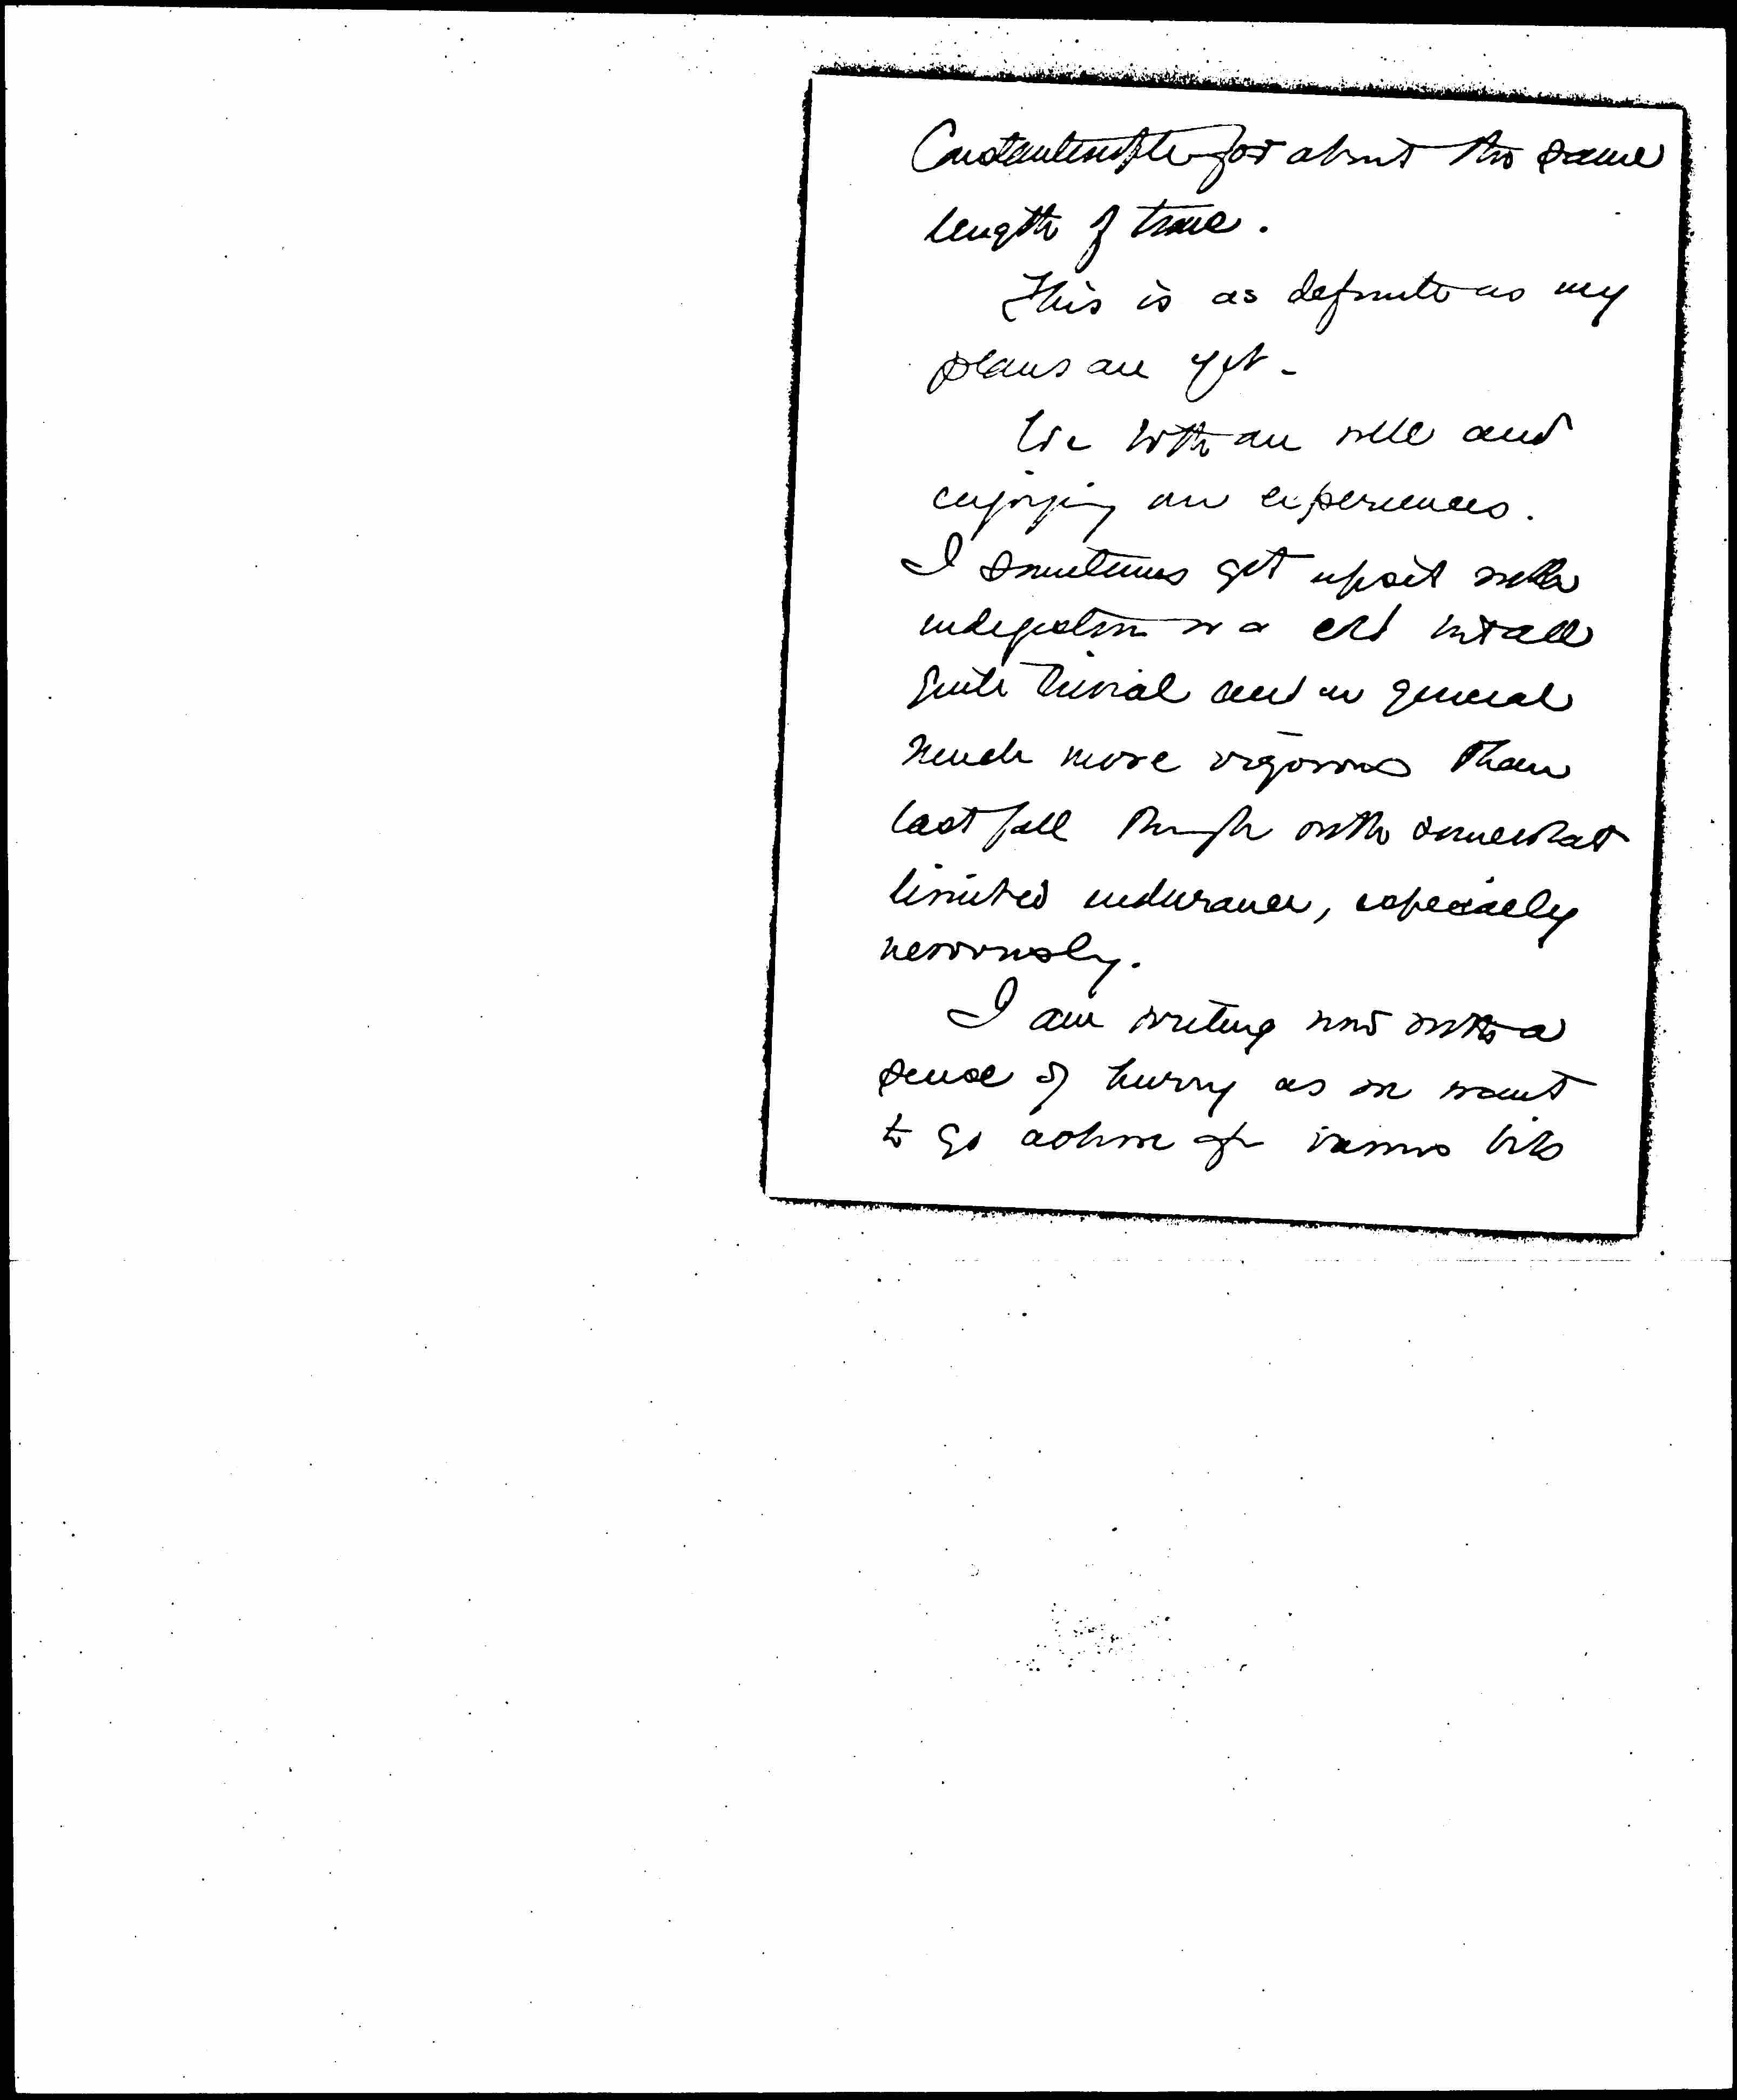 Constantinople for about the same
length of time.
This is as definite as my
plans are yet -
We both are well and
enjoying our experiences.
I sometimes get upset with
indigestion or a cold but all
quite trivial and in general
much more vigorous than
last fall though with somewhat
limited endurance, especially
nervously.
I am writing now with a
sense of hurry as we want
to go ashore for various bits